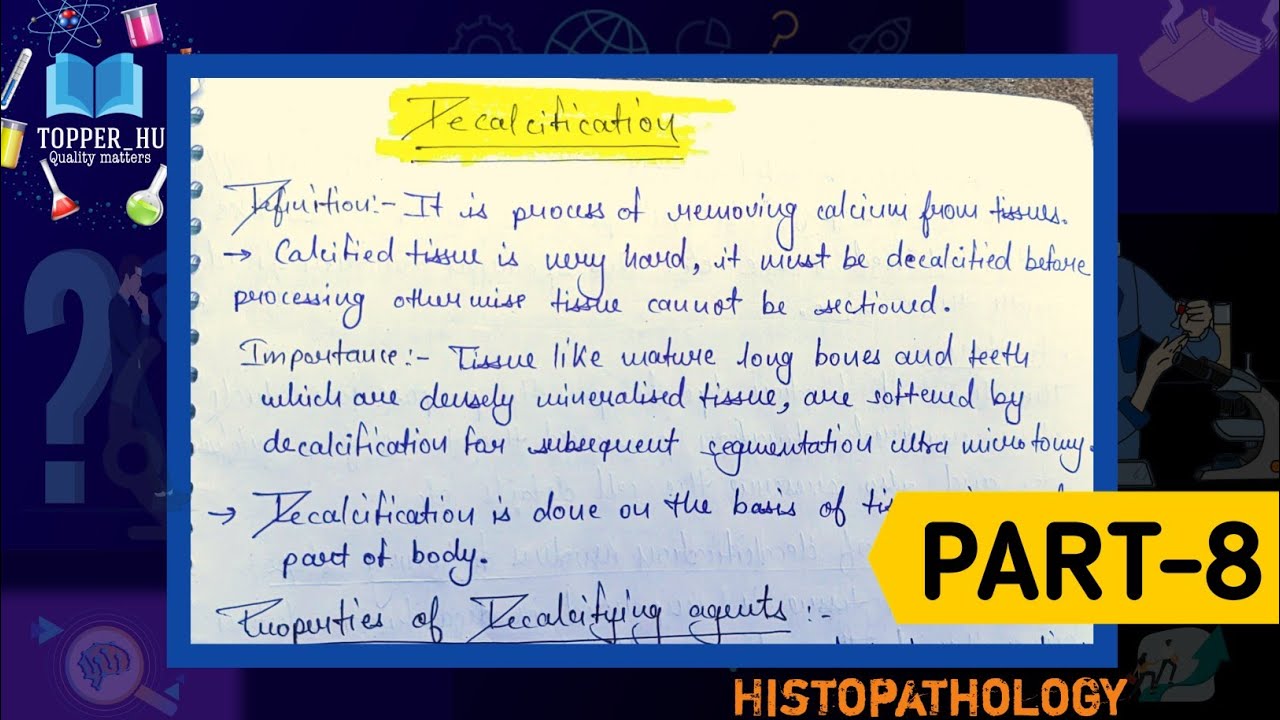 TOPPER_HU
Quality matters
Decalcification
Definition:- It is process of removing calcium from tissues.
→ Calcified tissue is very hard, it must be decalcified before
processing otherwise tissue cannot be sectioned.
Importance:- Tissue like mature long bones and teeth
which are densely mineralised tissue, are softened by
decalcification for subsequent segmentation ultra microtomy.
→ Decalcification is done on the basis of
part of body.
Properties of Decalcifying agents :-
PART-8
HISTOPATHOLOGY